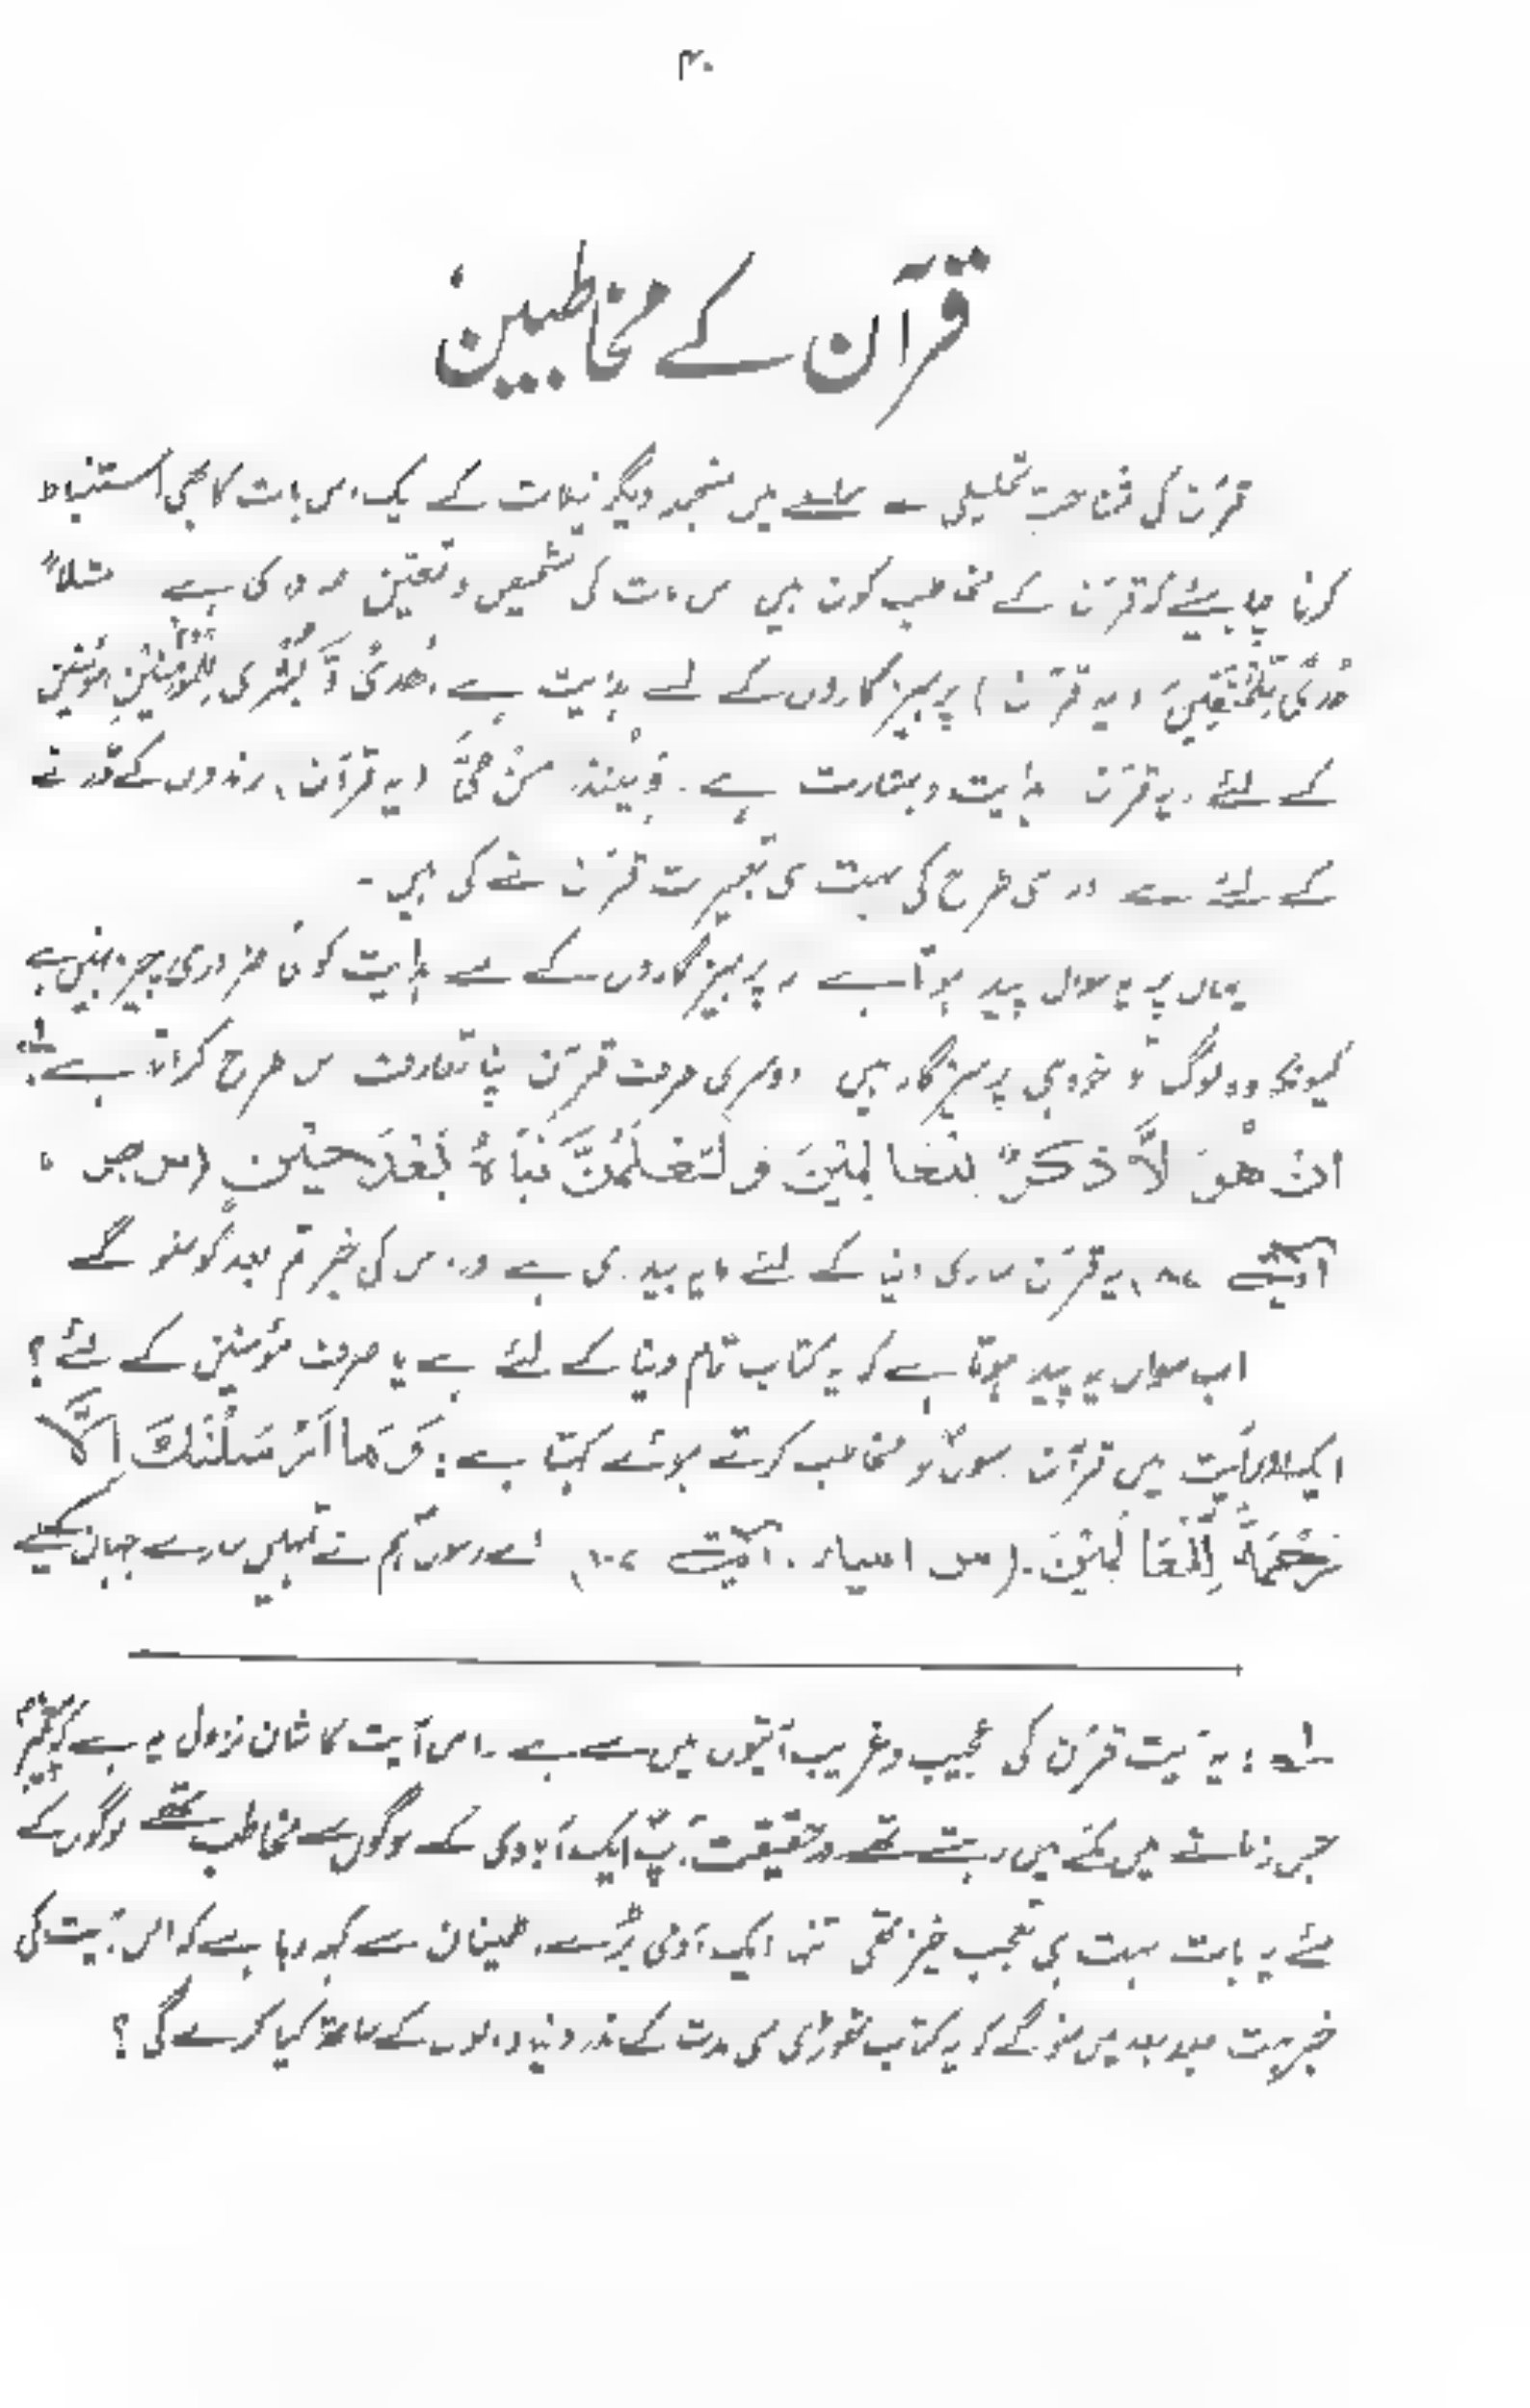 ۴۰
قرآن کے مخاطبین
قرآن کی شناخت تحلیلی کے سلسلے میں منجملہ دیگر نکات کے ایک اس بات کا بھی استنباط
کرنا چاہیئے کہ قرآن کے مخاطب کون ہیں اس بات کی تشخیص و تعیین ضروری ہے مثلاً
هُدًى لِّلْمُتَّقِينَ (یہ قرآن) پرہیزگاروں کے لئے ہدایت ہے۔ هُدًى وَّ بُشْرٰى لِلْمُؤْمِنِيْنَ مؤمنین
کے لئے یہ قرآن ہدایت و بشارت ہے۔ لِيُنْذِرَ مَنْ كَانَ حَيًّا (یہ قرآن) زندوں کے ڈرانے
کے لئے ہے اور اسی طرح کی بہت سی تعبیرات قرآن نے کی ہیں۔
یہاں پر یہ سوال پیدا ہوتا ہے کہ پرہیزگاروں کے لئے ہدایت کوئی ضروری چیز نہیں ہے
کیونکہ وہ لوگ تو خود ہی پرہیزگار ہیں دوسری طرف قرآن اپنا تعارف اس طرح کراتا ہے
اِنْ هُوَ اِلاَّ ذِكْرٌ لِلْعَالَمِيْنَ وَلَتَعْلَمُنَّ نَبَاَهُ بَعْدَ حِيْنٍ (س ص،
آیت ۸۷) یہ قرآن ساری دنیا کے لئے ہے اور اس کی خبر تم بعد کو سنو گے
اب سوال یہ پیدا ہوتا ہے کہ یہ کتاب تمام دنیا کے لئے ہے یا صرف مؤمنین کے لئے؟
ایک اور آیت میں قرآن رسولؐ کو مخاطب کرتے ہوئے کہتا ہے: وَمَا اَرْسَلْنٰكَ اِلاَّ
رَحْمَةً لِلْعَالَمِيْنَ۔ (س انبیاء۔ آیت ۱۰۷) اے رسول ہم نے تمہیں سارے جہان کیلئے
لہ: یہ آیت قرآن کی عجیب و غریب آیتوں میں سے ہے۔ اس آیت کا شان نزول یہ ہے کہ پیغمبرؐ
جس زمانے میں مکے میں رہتے تھے درحقیقت آپؐ ایک آبادی کے لوگوں سے مخاطب تھے لوگوں کے
لئے یہ بات بہت ہی تعجب خیز تھی تنہا ایک آدمی بڑے اطمینان سے کہہ رہا ہے کہ اس آیت کی
خبر بہت جلد بعد میں سنو گے کہ یہ کتاب تھوڑی سی مدت کے اندر دنیا والوں کے ساتھ کیا کرے گی؟